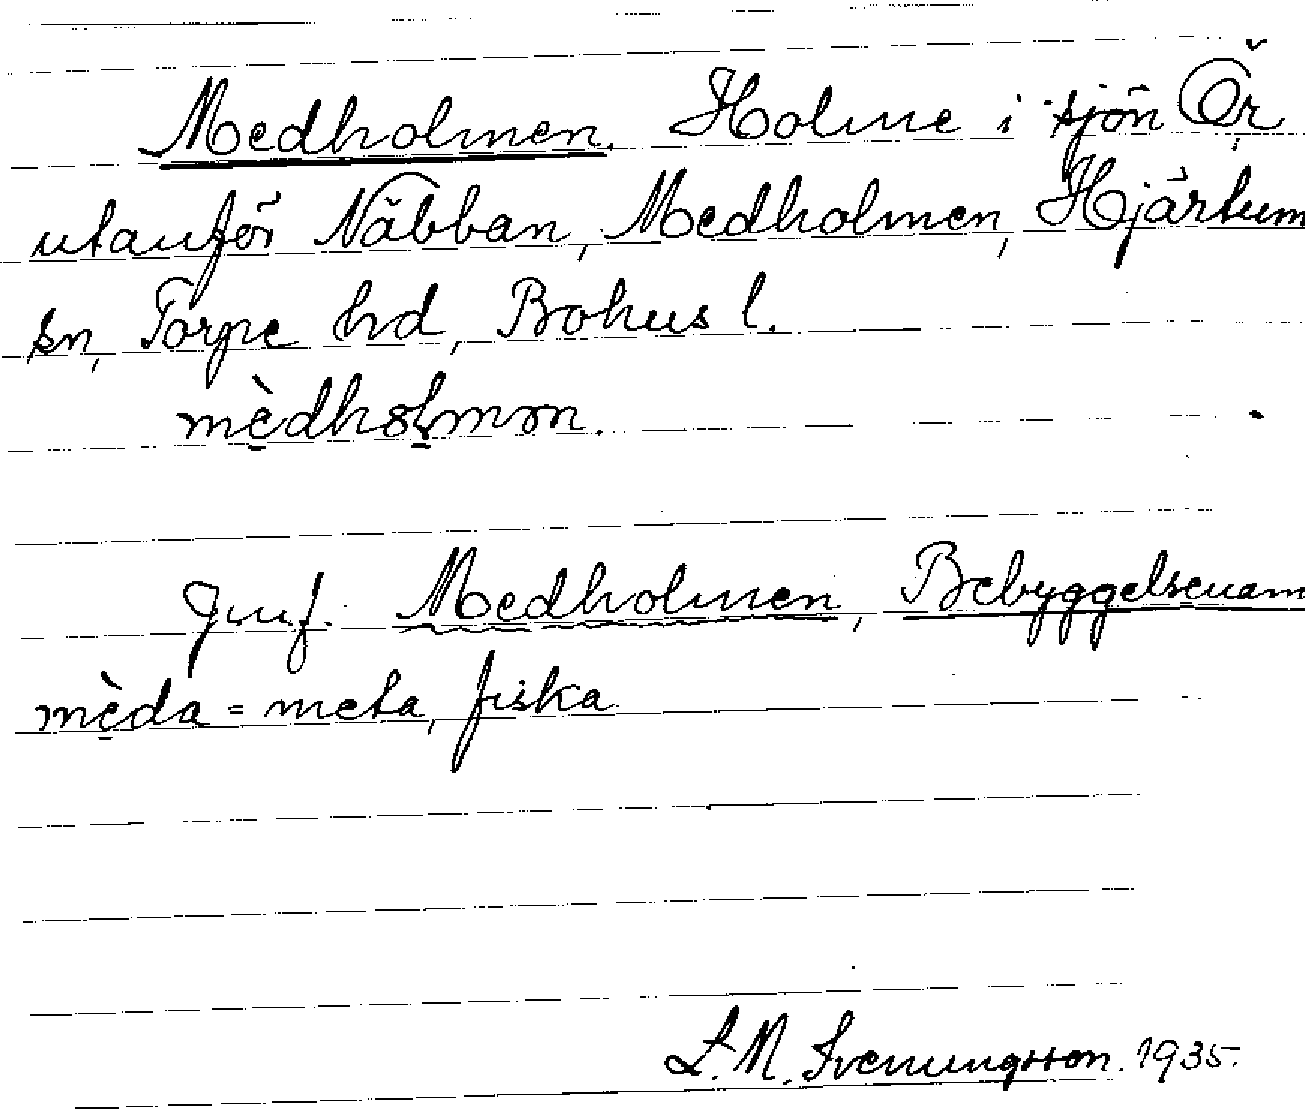 Medholmen. Holme i sjön Ör
utanför Näbban, Medholmen, Hjärtum
sn, Torpe hd, Bohus l.
mèdhɷlmɷn.
Jmf. Medholmen, Bebyggelsenam
mèda = meta, fiska
L. M. Svenungsson. 1935.